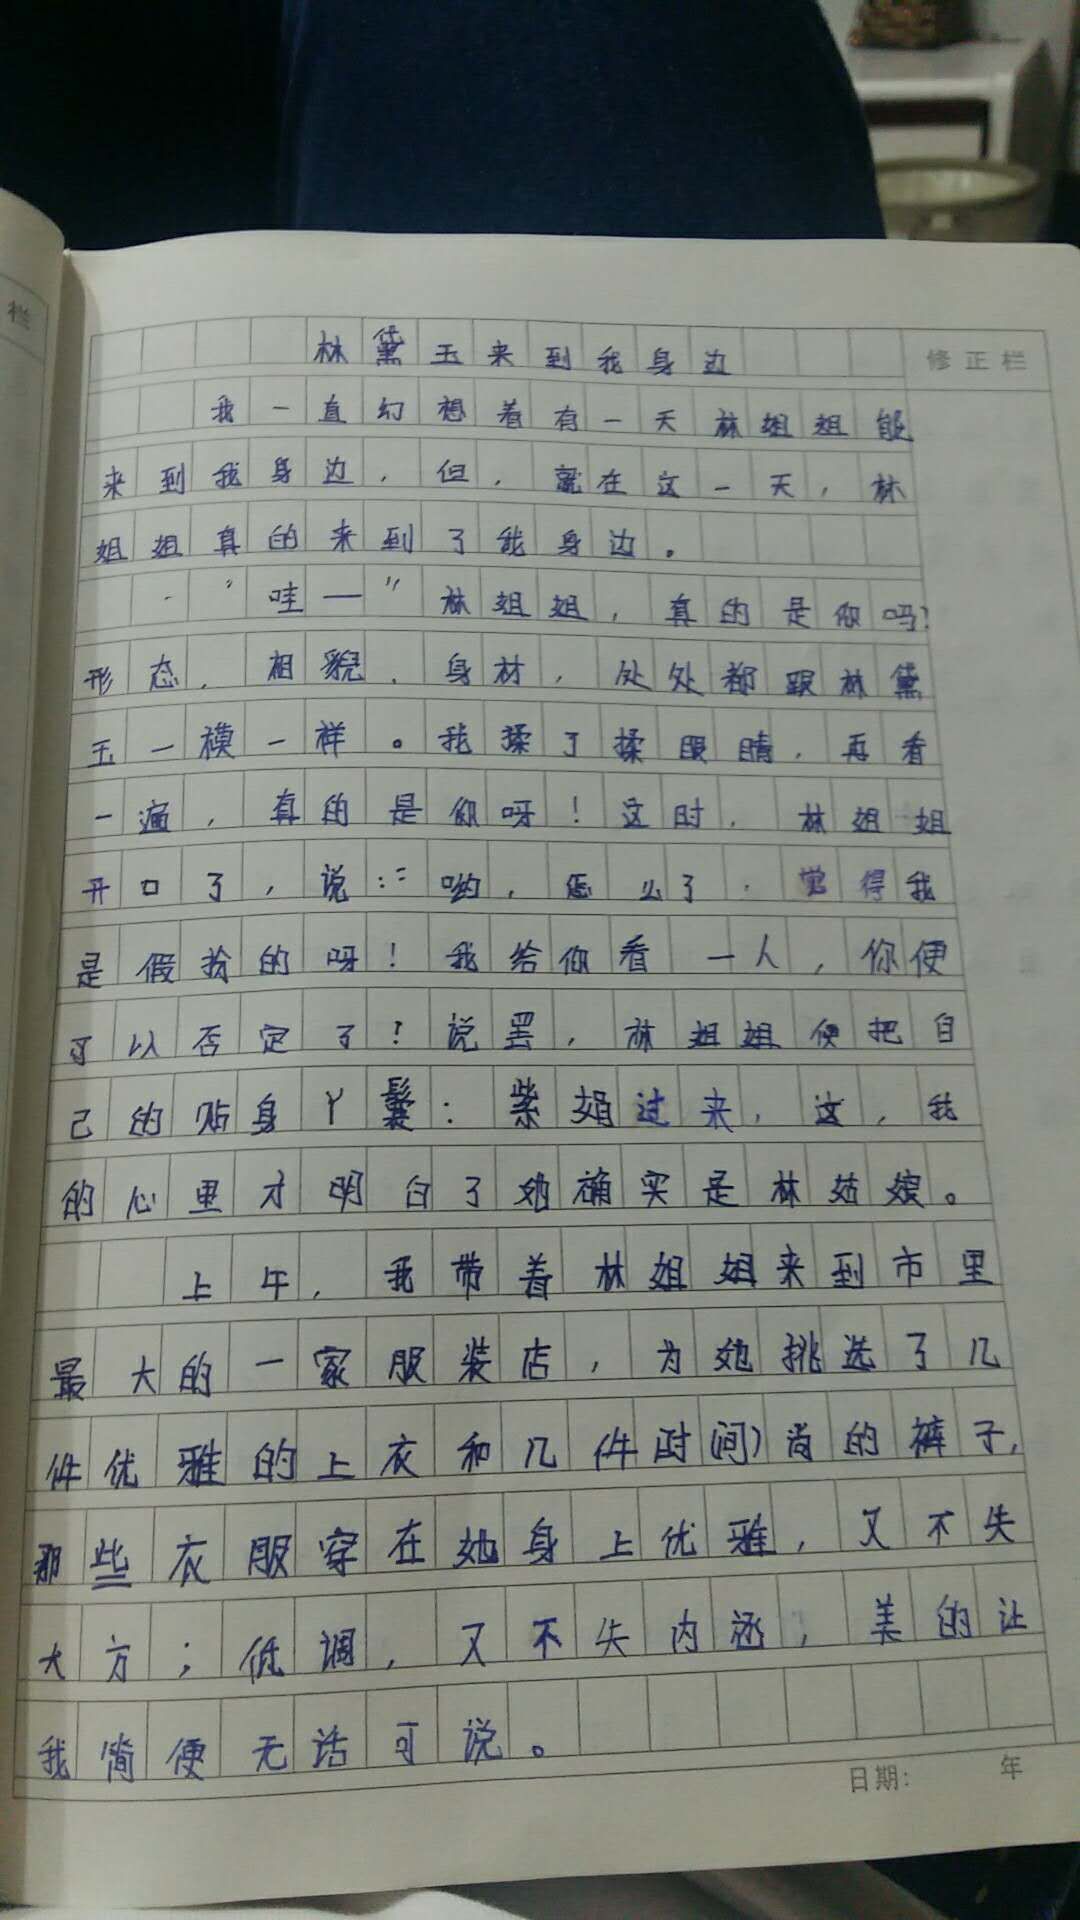 栏
林黛玉来到我身边
修正栏
我一直幻想着有一天林姐姐能
来到我身边，但，就在这一天，林
姐姐真的来到了我身边。
“哇—”林姐姐，真的是你吗？
形态，相貌，身材，处处都跟林黛
玉一模一样。我揉了揉眼睛，再看
一遍，真的是你呀！这时，林姐姐
开口了，说：“哟，怎么了，觉得我
是假扮的呀！我给你看一人，你便
可以否定了？说罢，林姐姐便把自
己的贴身丫鬟：紫娟过来，这，我
的心里才明白了她确实是林姑娘。
上午，我带着林姐姐来到市里
最大的一家服装店，为她挑选了几
件优雅的上衣和几件时(间)尚的裤子，
那些衣服穿在她身上优雅，又不失
大方；低调，又不失内涵，美的让
我简便无话可说。
日期： 年